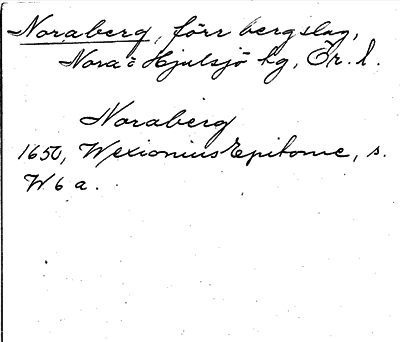 Noraberg, förr bergslag,
Nora o Hjulsjö kg, Ör. l.
Noraberg
1650, Wexionius Epitome, s.
W 6 a.